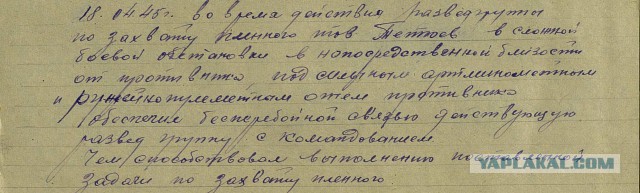 18.04.45г. во время действия разведгруппы
по захвату пленного тов Тетюев в сложной
боевой обстановке в непосредственной близости
от противника под сильным артминометным
и ружейнопулеметным огнем противника
обеспечил бесперебойной связью действующую
развед группу с командованием.
Чем способствовал выполнению поставленной
задачи по захвату пленного.
YAPLAKAL.COM